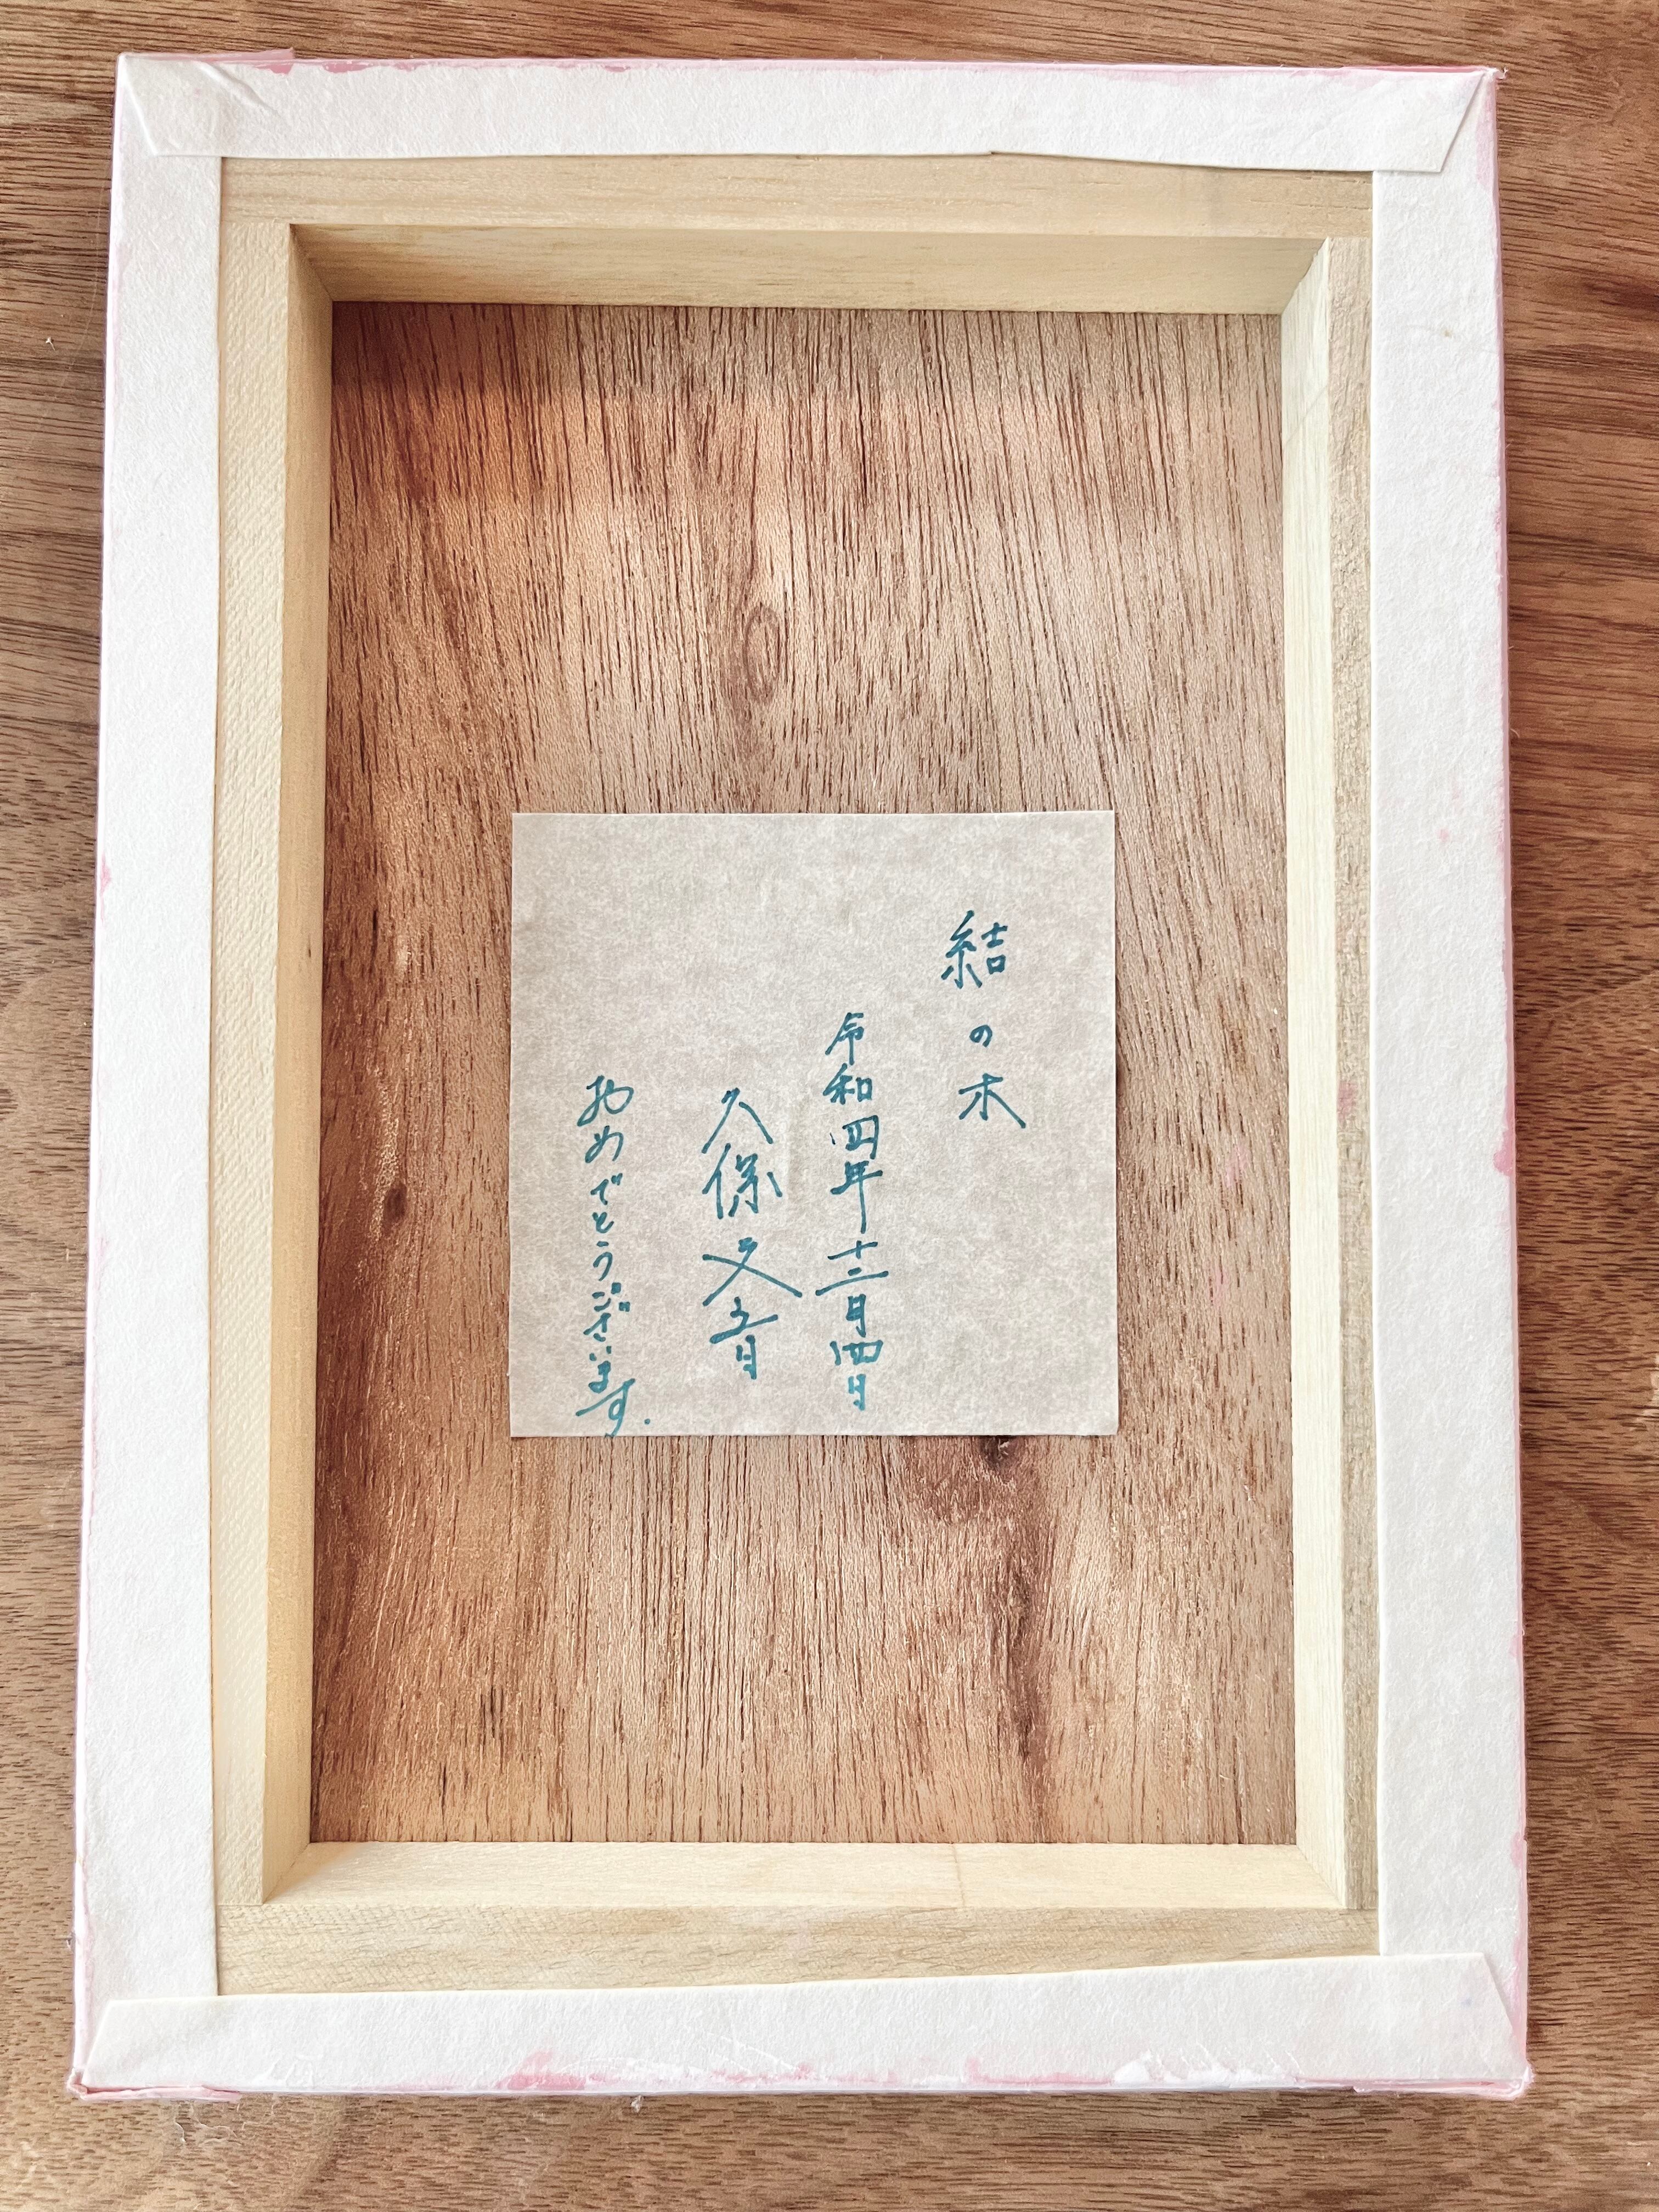 結の木
令和四年十二月四日
久保文音
おめでとうございます.